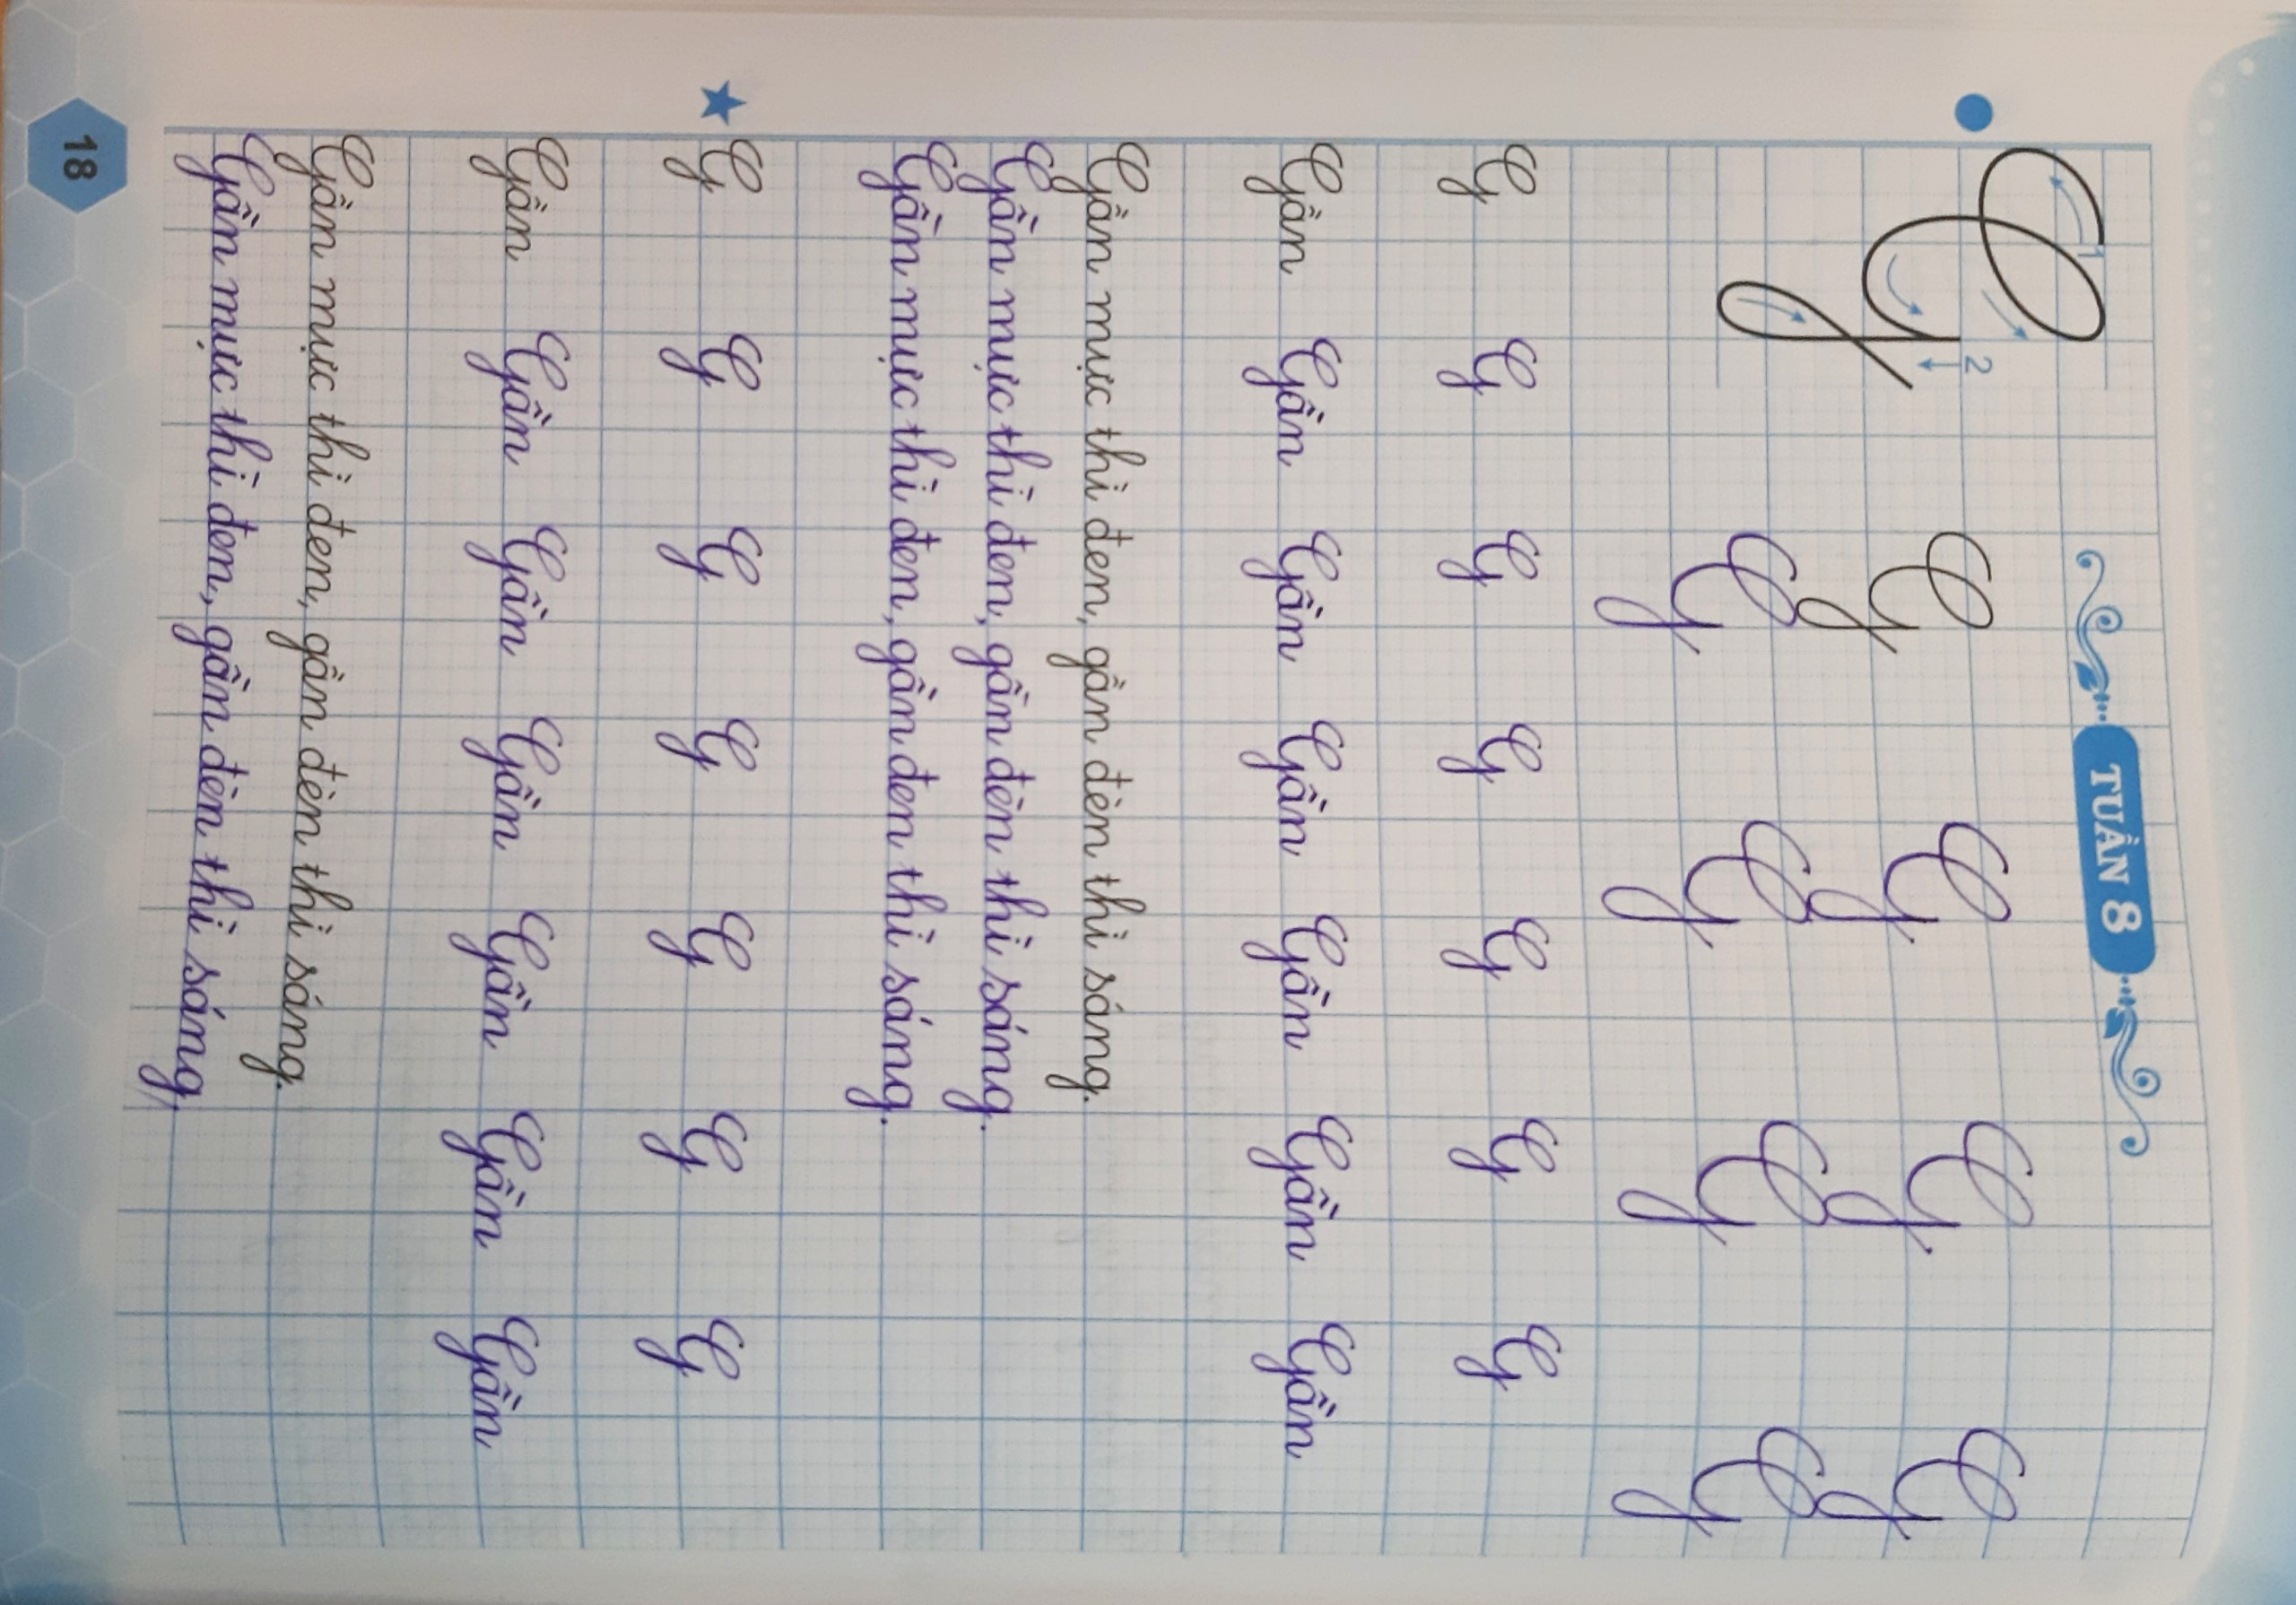 TUẦN 8
1 2 G G G G G
G G G G
G G G G G G G
Gần Gần Gần Gần Gần Gần Gần
Gần mực thì đen, gần đèn thì sáng.
Gần mực thì đen, gần đèn thì sáng.
Gần mực thì đen, gần đen thì sáng.
G G G G G G G
Gần Gần Gần Gần Gần Gần Gần
Gần mực thì đen, gần đèn thì sáng.
Gần mực thì đen, gần đèn thì sáng.
18